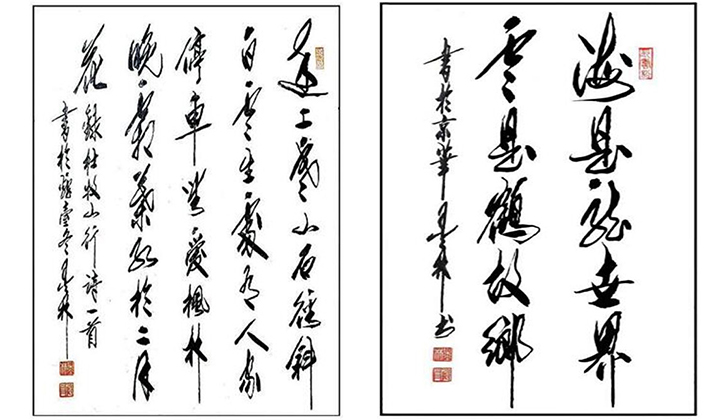 遠上寒山石徑斜
白雲生處有人家
停車坐愛楓林
晚霜葉紅於二月
花
錄杜牧山行詩一首
書於
海是龍世界
雲是鶴故鄉
書於京華